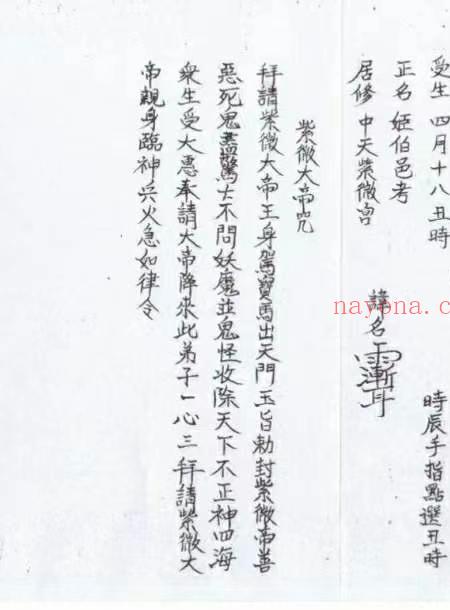 受生 四月十八丑時
時辰手指點選丑時
正名 姬伯邑考
諱名
居修 中天紫微宮
紫微大帝咒
拜請紫微大帝王身駕寶馬出天門玉旨勅封紫微帝善
惡死鬼驚亡不問妖魔並鬼怪收除天下不正神四海
衆生受大惠奉請大帝降來此弟子一心三拜請紫微大
帝親身臨神兵火急如律令
nayona.cn